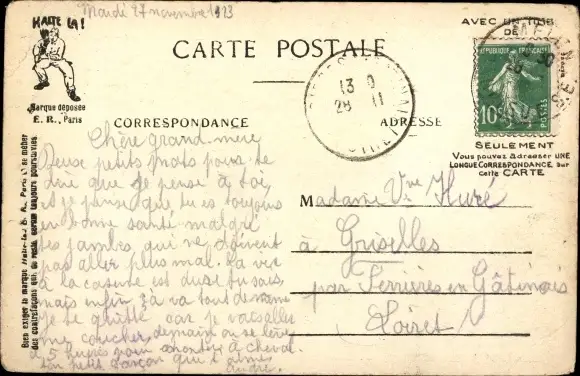 Mardi 27 novembre 1923
HALTE LA!
Marque déposée
E. R., Paris
CARTE POSTALE
CORRESPONDANCE
ADRESSE
AVEC UN TIMBRE
DE
REPUBLIQUE FRANÇAISE
10c
POSTES
SEULEMENT
Vous pouvez adresser UNE
LONGUE CORRESPONDANCE sur
cette CARTE
13 0
28 11
MELUN
Chère grand-mère
Deux petits mots pour te
dire que je pense à toi,
et je pense que tu es toujours
en bonne santé malgré
tes jambes qui ne doivent
pas aller plus mal. La vie
à la caserne est dure tu sais,
mais enfin ça va tout de même
je te quitte car je vais aller
me coucher, demain on se lève
à 5 heures pour monter à cheval.
Ton petit garçon qui t'aime
André.
Madame Vve Huré
à Griselles
par Ferrières en Gâtinais
Loiret
Bien exiger la marque Halte-là E. R., Paris
des contrefaçons qui toujours poursuivies.